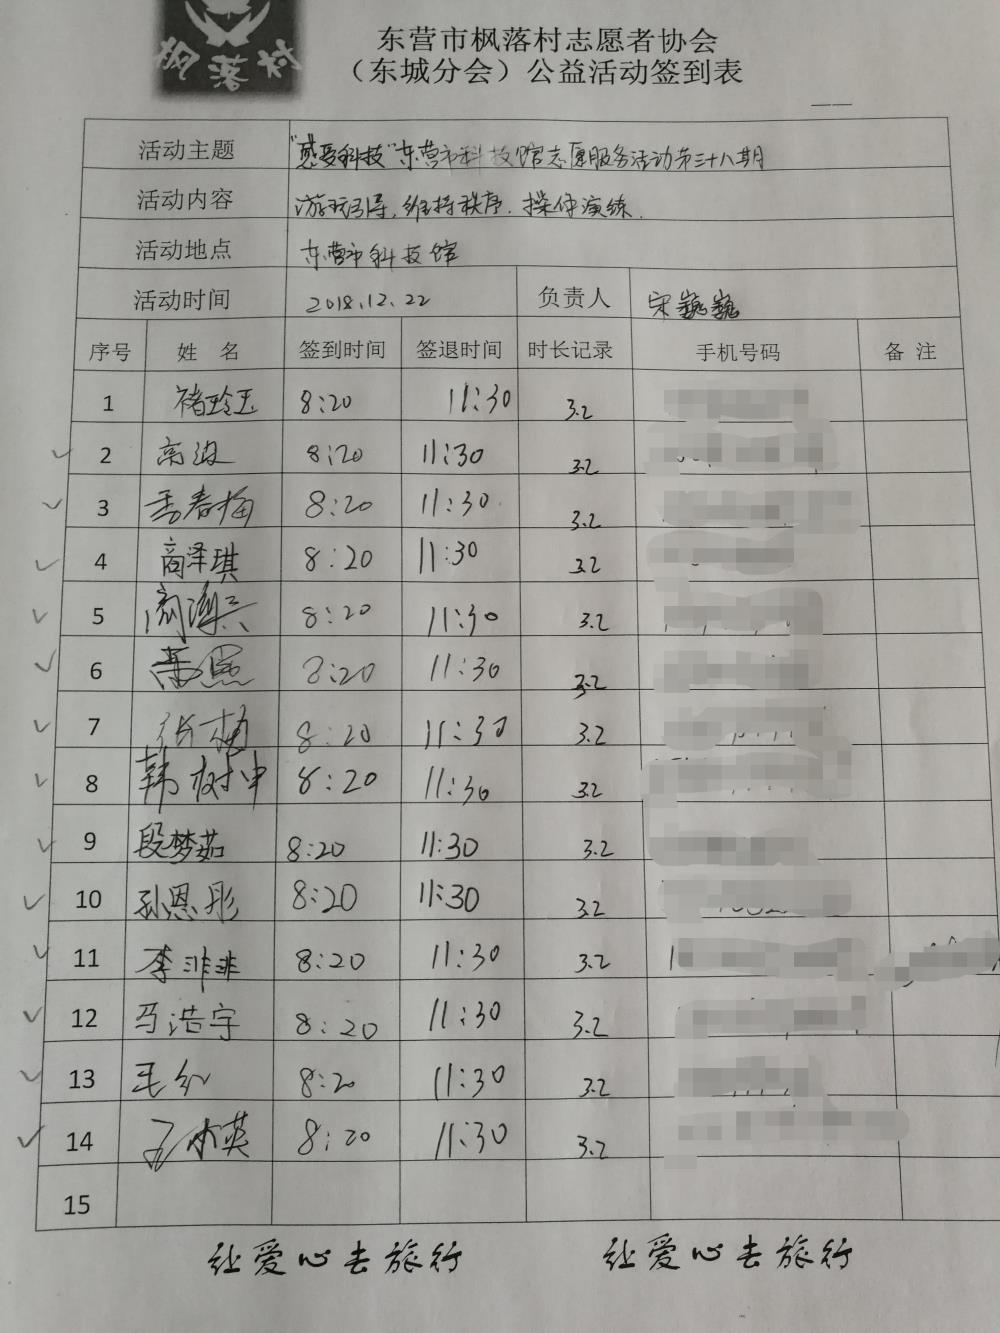 枫落村
东营市枫落村志愿者协会
（东城分会）公益活动签到表
活动主题 "感受科技"东营市科技馆志愿服务活动第三十八期
活动内容 游玩引导，维持秩序．操作演练．
活动地点 东营市科技馆
活动时间 2018.12.22 负责人 宋巍巍
序号 姓 名 签到时间 签退时间 时长记录 手机号码 备 注
1 褚玲玉 8:20 11:30 3.2
2 高波 8:20 11:30 3.2
3 春梅 8:20 11:30 3.2
4 商泽琪 8:20 11:30 3.2
5 8:20 11:30 3.2
6 8:20 11:30 3.2
7 8:20 11:30 3.2
8 韩树申 8:20 11:30 3.2
9 段梦茹 8:20 11:30 3.2
10 孙恩彤 8:20 11:30 3.2
11 李非非 8:20 11:30 3.2
12 马浩宇 8:20 11:30 3.2
13 毛红 8:20 11:30 3.2
14 英 8:20 11:30 3.2
15
让爱心去旅行 让爱心去旅行